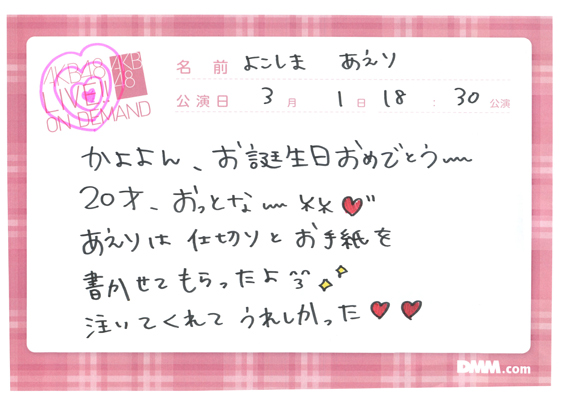 AKB48
LIVE!!
ON DEMAND
AKB
48
名 前 よこしま あえり
公演日 3 月 1 日 18 : 30 公演
かよよん、お誕生日おめでとう〰
20才、おっとな〰 ××
あえりは 仕切りと お手紙を
書かせてもらったよ
注いてくれて うれしかった
DMM.com